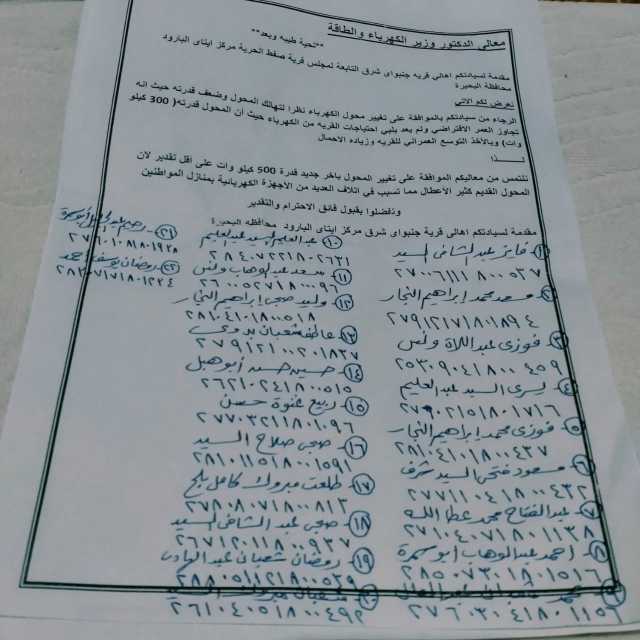 معالي الدكتور وزير الكهرباء والطاقة
**تحية طيبه وبعد**
مقدمة لسيادتكم اهالي قريه جنبواى شرق التابعة لمجلس قرية صفط الحرية مركز ايتاى البارود
محافظة البحيرة
نعرض لكم الاتي
الرجاء من سيادتكم بالموافقة على تغيير محول الكهرباء نظرا لتهالك المحول وضعف قدرته حيث انه
تجاوز العمر الافتراضي ولم يعد يلبي احتياجات القريه من الكهرباء حيث أن المحول قدرته( 300 كيلو
وات) وبالأخذ التوسع العمراني للقريه وزياده الاحمال
لـــذا
نلتمس من معاليكم الموافقة على تغيير المحول باخر جديد قدرة 500 كيلو وات على اقل تقدير لان
المحول القديم كثير الأعطال مما تسبب في اتلاف العديد من الأجهزة الكهربائية بمنازل المواطنين
وتفضلوا بقبول فائق الاحترام والتقدير
مقدمة لسيادتكم اهالى قرية جنبواى شرق مركز ايتاى البارود محافظه البحيرة
١- فايز عبد الشافى السيد
٢٧٠٠٦١١١٨٠٠٥٣٧
٢- مسعد محمد إبراهيم النجار
٢٧٩١٢١٧١٨٠١٨٩٤
٣- فوزى عبد اللاة ونس
٢٥٣٠٩٠٤١٨٠٠٤٥٩
٤- يسرى السيد عبد العليم
٢٧٩٠٢١٥١٨٠١٧١٦
٥- فوزى محمد إبراهيم النجار
٢٨١٠٤١٠١٨٠٠٤٣٧
٦- مسعود فتحى السيد شرف
٢٧٧١١٠٤١٨٠٠٤٣٢
٧- عبد الفتاح محمد عطا الله
٢٧١٠٤٠٧١٨٠١١٣٨
٨- احمد عبد الوهاب أبو سمرة
٢٨٥٠٧٣٠١٨٠١٥١٦
٢٧٦٠٣٠٤١٨٠١١٥
١٠- عبد العليم السيد عبد العليم
٢٨٤٠٧٢٢١٨٠٢٦٢١
١١- سعد عبد الوهاب ونس
٢٦٠٠٥٢٧١٨٠٠٠٩٦
١٢- وليد صبحى إبراهيم النجار
٢٨١٠٤١٠١٨٠٠٥١٨
١٣- عاطف شعبان بدوى
٢٧٩١٢١٠٠٢٠١٨٣٧
١٤- حسين حسن أبو هبل
٢٦٢١٠٢٤١٨٠٠٥١٥
١٥- ربيع عنوة حسن
٢٧٧٠٣٢١١٨٠١٠٩٦
١٦- صبحى صلاح السيد
٢٨١٠١١٥١٨٠٠١٥٩١
١٧- طلعت مبروك كامل بلح
٢٧٨٠٨٠٧١٨٠٠٨١٣
١٨- صبحى عبد الشافى السيد
٢٦٧١٢٠١١٨٠٠٩٣٧
١٩- رمضان شعبان عبد الهادى
٢٨٨٠٥١١٢١٨٠٠٥٢٩
شعبان مبروك السيد
٢٦١٠٤٠٥١٨٠٠٤٩٢
٢١-
٢٧٦٠١٠٨١٨٠١٩٣٥
٢٢- رمضان يوسف احمد
٢٨٣٠٧١٧١٨٠١٢٣٤